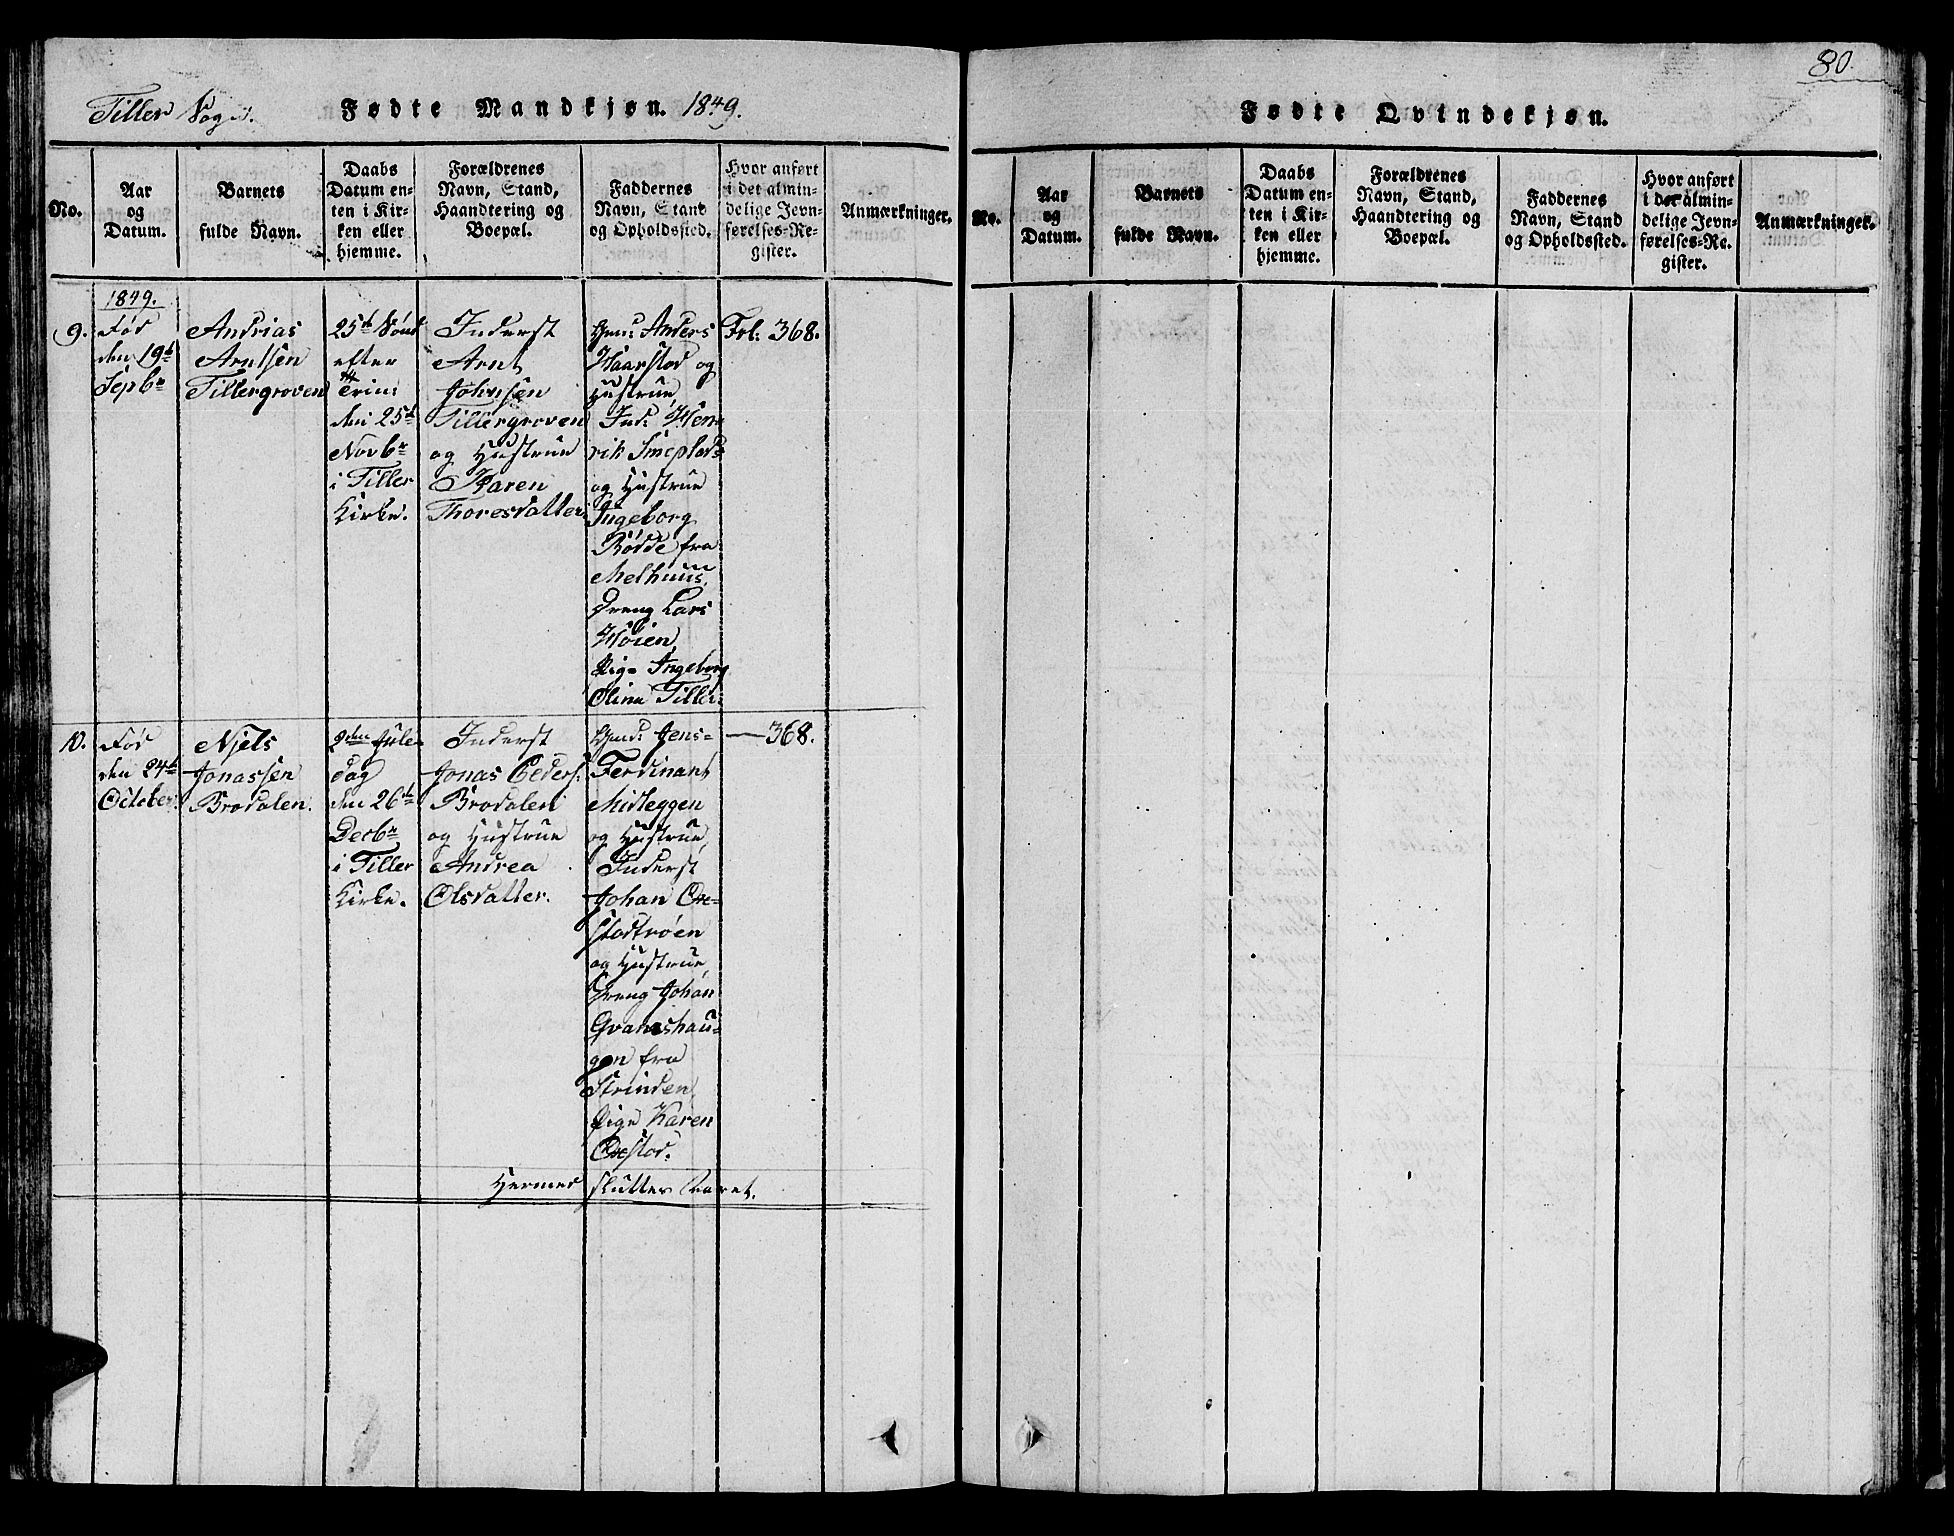 80.
Tiller Sogn.
Fødte Mandkjøn. 1849.
No.
Aar
og
Datum.
Barnets
fulde Navn.
Daabs
Datum en-
ten i Kir-
ken eller
hjemme.
Forældrenes
Navn, Stand,
Haandtering og
Boepæl.
Faddernes
Navn, Stand
og Opholdssted.
Hvor anført
i det almin-
delige Jevn-
førelses-Re-
gister.
Anmærkninger.
9.
1849.
Fød
den 19de
Sepbr
Andrias
Arntsen
Tillergroven
25de Sønd
efter
Trin:
den 25de
Novbr
i Tiller
Kirke.
Inderst
Arnt
Johnsen
Tillergroven
og Hustrue
Karen
Thoresdatter.
Gmd: Anders
Haarstad og
Hustrue,
Ind: Hen-
rik
og Hustrue
Ingeborg
Rødde fra
Melhuus,
Dreng Lars
Høien,
Pige Ingeborg
Olina Tiller.
Fol. 368.
10.
Fød
den 24de
October.
Njels
Jonassen
Brødalen.
2den Jule-
dag
den 26de
Decbr
i Tiller
Kirke.
Inderst
Jonas Peders:
Brødalen
og Hustrue
Andrea
Olsdatter.
Gmd: Jens
Ferdinant
Midleggen
og Hustrue,
Inderst
Johan Øe-
stadtrøen
og Hustrue,
Dreng Johan
Granshau-
gen fra
Strinden,
Pige Karen
Øestad.
— 368.
Hermed slutter Aaret.
Fødte Qvindekjøn.
No.
Aar
og
Datum.
Barnets
fulde Navn.
Daabs
Datum en-
ten i Kir-
ken eller
hjemme.
Forældrenes
Navn, Stand,
Haandtering og
Boepæl.
Faddernes
Navn, Stand
og Opholdssted.
Hvor anført
i det almin-
delige Jevn-
førelses-Re-
gister.
Anmærkninger.